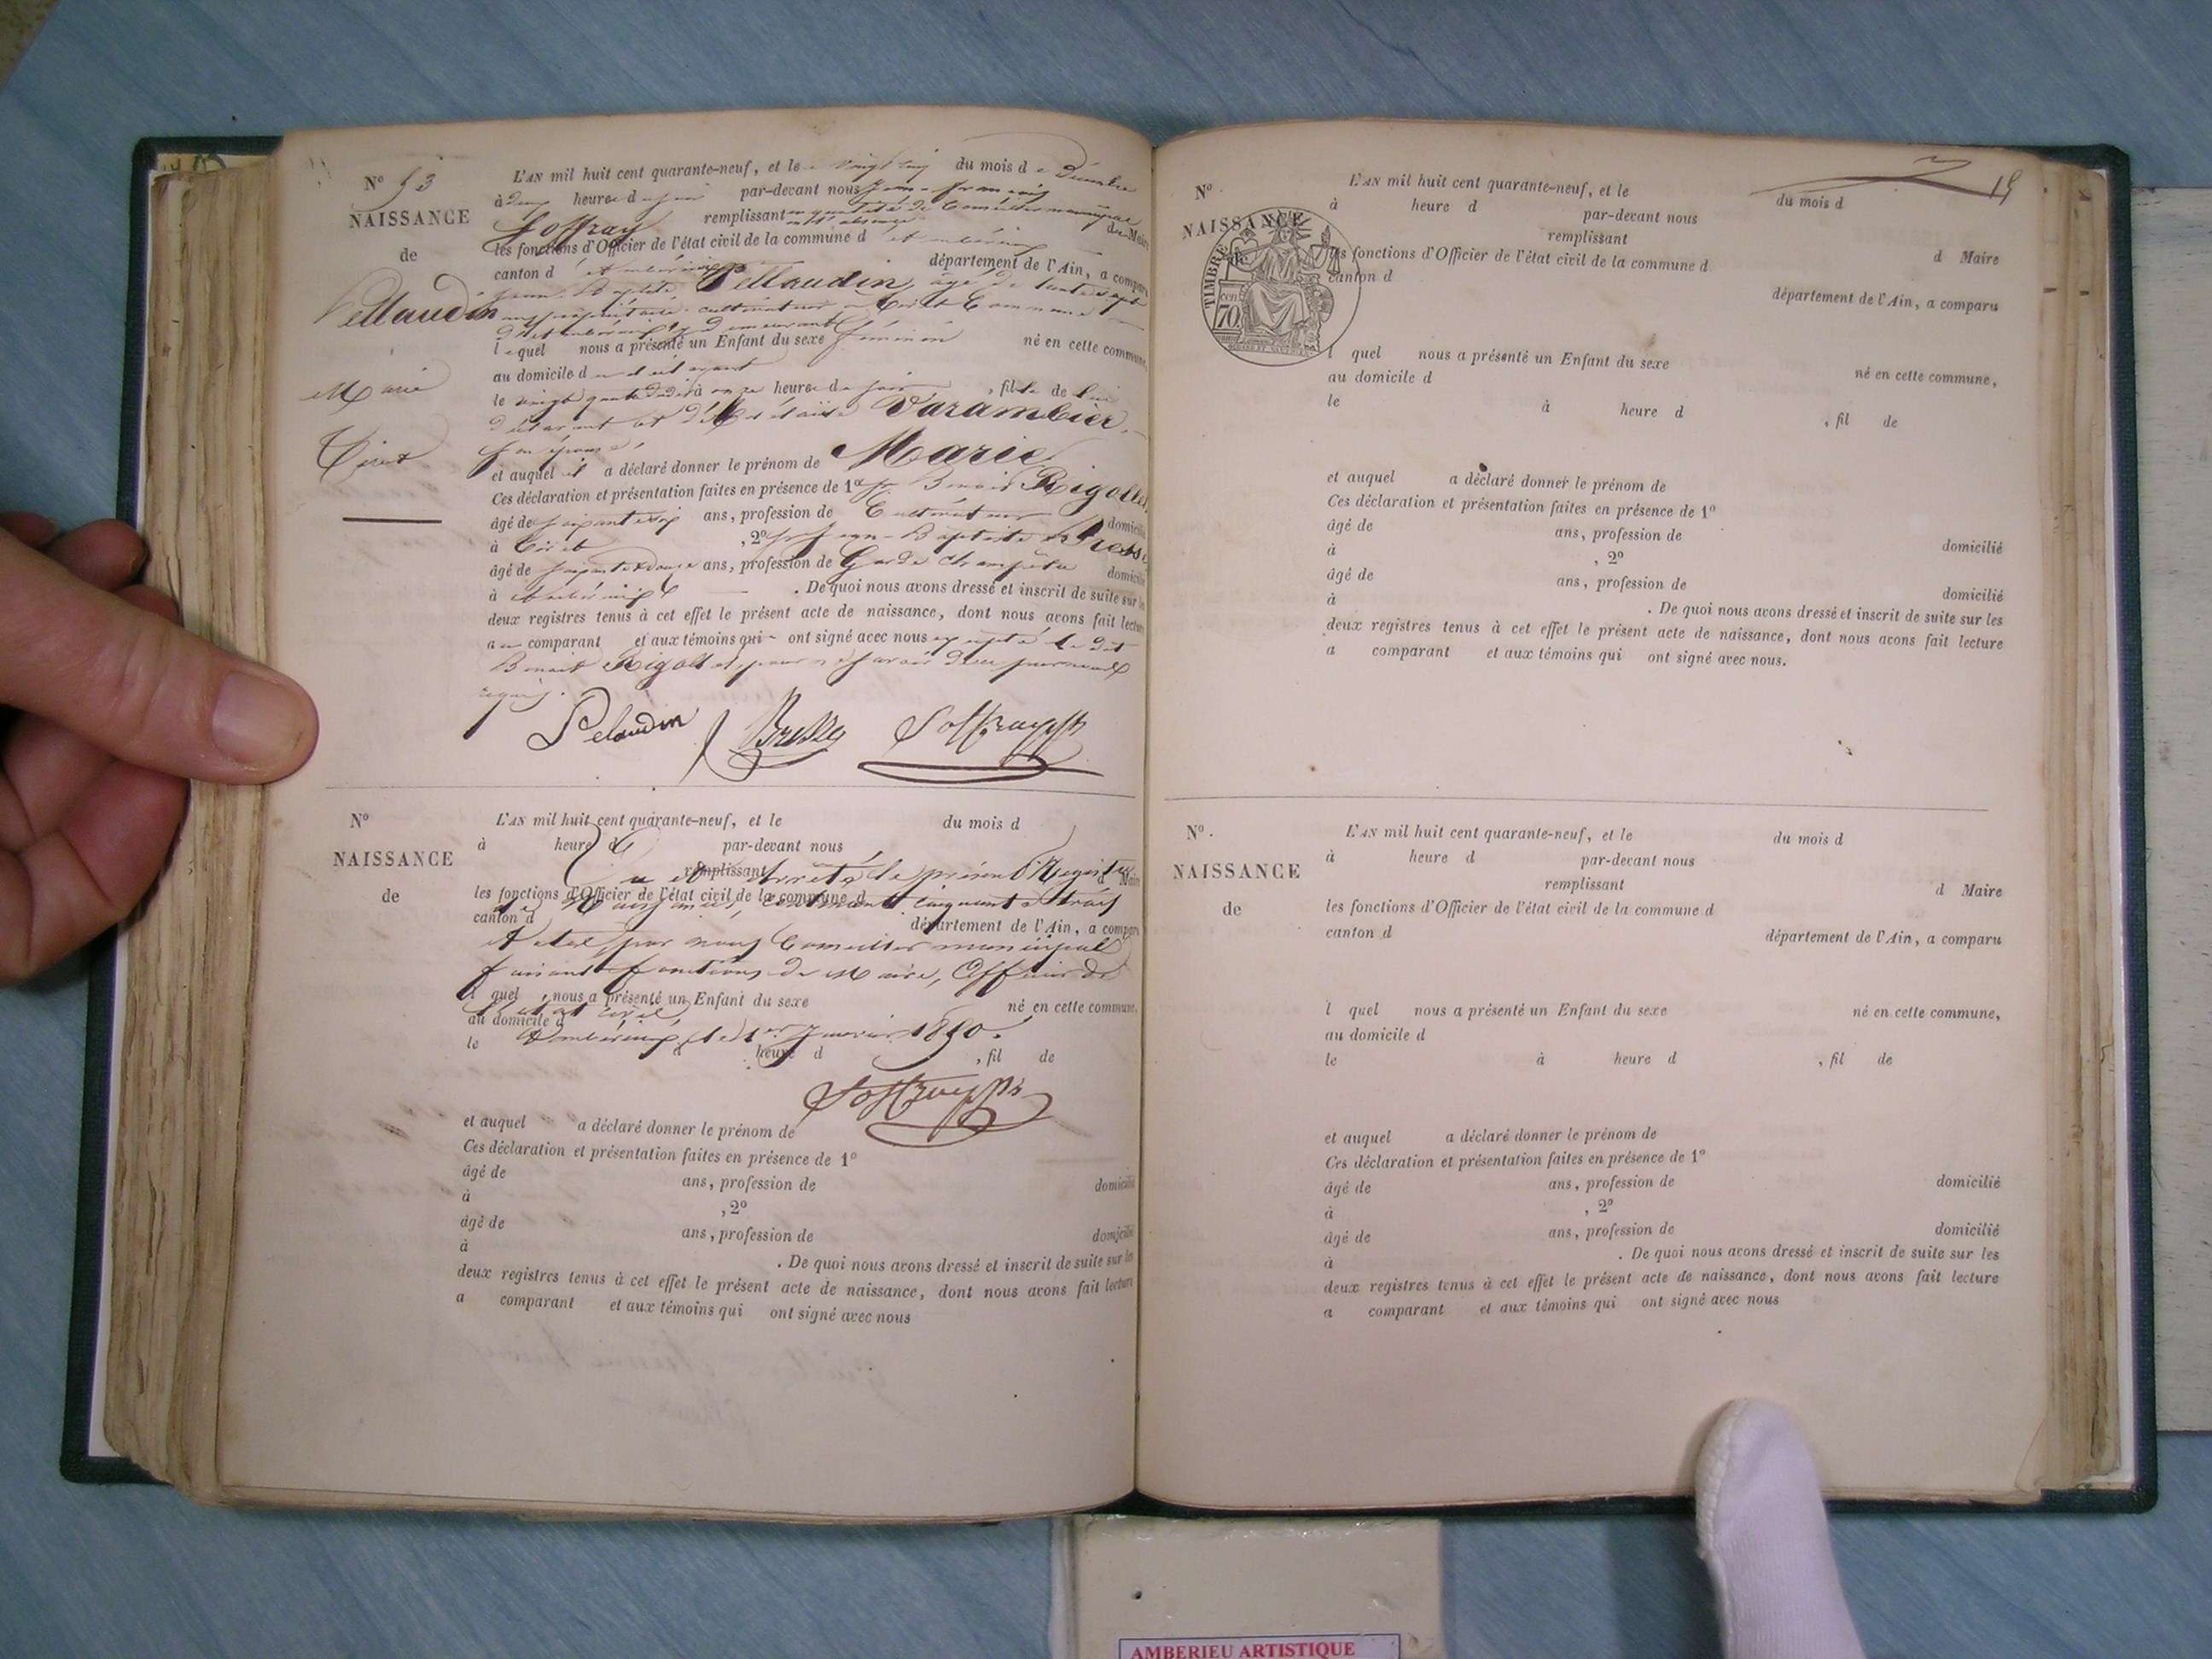 N° 53
NAISSANCE
de
Pellaudin
Marie
Tiret
L'AN mil huit cent quarante-neuf, et le vingt cinq du mois de Décembre
à deux heures du soir par-devant nous Jean-françois
Soffray remplissant en qualité de Conseiller municipal en l'absence du Maire
les fonctions d'Officier de l'état civil de la commune d'Ambérieux
canton d'Ambérieux département de l'Ain, a comparu
Jean-Baptiste Pellaudin, âgé de trente sept
ans, propriétaire cultivateur à Tiret Commune
d'Ambérieux y demeurant
lequel nous a présenté un Enfant du sexe féminin né en cette commune,
au domicile du déclarant
le vingt quatre dudit à onze heures du soir, fille de lui
déclarant et de Varambier
son épouse
et auquel il a déclaré donner le prénom de Marie
Ces déclaration et présentation faites en présence de 1° Benoit Rigollet
âgé de ans, profession de Cultivateur domicilié
à Tiret, 2° Jean-Baptiste Bresse
âgé de ans, profession de Garde Champêtre domicilié
à Ambérieux. De quoi nous avons dressé et inscrit de suite sur les
deux registres tenus à cet effet le présent acte de naissance, dont nous avons fait lecture
au comparant et aux témoins qui ont signé avec nous excepté le dit
Benoit Rigollet, pour ne savoir de ce
requis.
Pelaudin Bresse Soffray
N°
NAISSANCE
de
L'AN mil huit cent quarante-neuf, et le du mois d
à heure d par-devant nous
remplissant d Maire
Clos et arrêté le présent Registre
les fonctions d'Officier de l'état civil de la commune d
des Naissances, contenant Cinquante trois
canton d département de l'Ain, a comparu
Actes, par nous Conseiller municipal
faisant fonctions de Maire, Officier de
l quel nous a présenté un Enfant du sexe né en cette commune,
l'état civil
au domicile d
Ambérieux, le 1er Janvier 1850.
le à heure d , fil de
Soffray
et auquel a déclaré donner le prénom de
Ces déclaration et présentation faites en présence de 1°
âgé de ans, profession de domicilié
à , 2°
âgé de ans, profession de domicilié
à . De quoi nous avons dressé et inscrit de suite sur les
deux registres tenus à cet effet le présent acte de naissance, dont nous avons fait lecture
a comparant et aux témoins qui ont signé avec nous
15
N°.
NAISSANCE
TIMBRE
cen
70
L'AN mil huit cent quarante-neuf, et le du mois d
à heure d par-devant nous
remplissant d Maire
les fonctions d'Officier de l'état civil de la commune d
canton d département de l'Ain, a comparu
l quel nous a présenté un Enfant du sexe né en cette commune,
au domicile d
le à heure d , fil de
et auquel a déclaré donner le prénom de
Ces déclaration et présentation faites en présence de 1°
âgé de ans, profession de domicilié
à , 2°
âgé de ans, profession de domicilié
à . De quoi nous avons dressé et inscrit de suite sur les
deux registres tenus à cet effet le présent acte de naissance, dont nous avons fait lecture
a comparant et aux témoins qui ont signé avec nous.
N°.
NAISSANCE
de
L'AN mil huit cent quarante-neuf, et le du mois d
à heure d par-devant nous
remplissant d Maire
les fonctions d'Officier de l'état civil de la commune d
canton d département de l'Ain, a comparu
l quel nous a présenté un Enfant du sexe né en cette commune,
au domicile d
le à heure d , fil de
et auquel a déclaré donner le prénom de
Ces déclaration et présentation faites en présence de 1°
âgé de ans, profession de domicilié
à , 2°
âgé de ans, profession de domicilié
à . De quoi nous avons dressé et inscrit de suite sur les
deux registres tenus à cet effet le présent acte de naissance, dont nous avons fait lecture
a comparant et aux témoins qui ont signé avec nous
AMBERIEU ARTISTIQUE